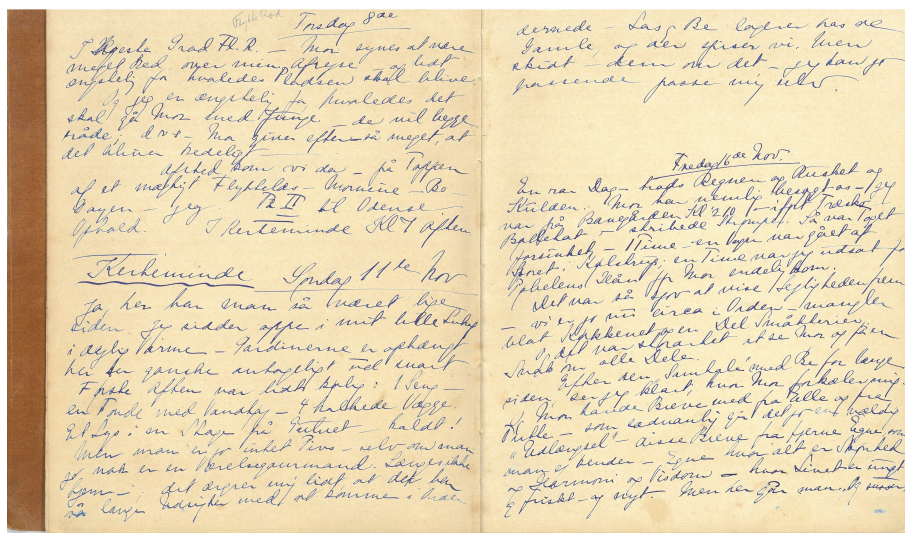 Torsdag 8de
meget Ked over min Afrejse og lidt
ængstelig for hvaledes Pladsen skal blive.
Og jeg er ængstelig for hvaledes det
skal gå Mor med de vil begge
råde, dvs - Mor giver efter så meget, at
det bliver kedeligt
Afsted kom vi da - på Toppen
af et mægtigt Flyttelæs -
jeg. til Odense -
Ophold. I Kerteminde Kl 7 Aften
Kerteminde Søndag 11te Nov
Ja her har man så været lige
siden. Jeg sidder oppe i mit lille
i dejlig Varme - Gardinerne er ophængt
her er ganske antageligt ved snart
Første Aften var lidt : 1 Seng -
en Tønde med Vandfag - 4 Vægge.
Et Lys i en Stage på - koldt!
Men man er jo intet - selv om man
jo nok er en Længes ikke
hjem - ; det ærgrer mig lidt at det har
så lange Udsigter med at komme i Orden
dernede - Las & Be logerer hos de
Gamle og der spiser vi. Men
skidt - dem om det - jeg kan jo
passende passe mig selv.
Fredag 16de Nov.
En rar Dag - trods Regnen og Rusket og
Kulden. Mor har nemlig besøgt os - Jeg
var på Banegården Kl 2 10 - iført Træsko
Ballehat & stribede Så var Toget
forsinket - 1 Time - en Vogn var gået af
Sporet i Kølstrup; en Time var jeg udsat for
Pøbelens Hån før Mor endelig kom.
Det var så sjov at vise Lejligheden frem
- vi er jo nu circa i Orden - mangler
blot Køkkenet og en Del Småtterier.
Og det var at se Mor og få en
Snak om alle Dele.
Efter den Samtale med Be for længe
siden ser jeg klart, hvor Mor
Mor havde Breve med fra Ulle og fra
Putte - som sædvanlig går det jo en vældig
"Udlængsel" disse Breve fra fjerne Egne, som
man ej kender - Egne hvor alt er Skønhed
og Harmoni og Visdom - hvor Livet er ungt
& friskt - og nyt. Men her går man